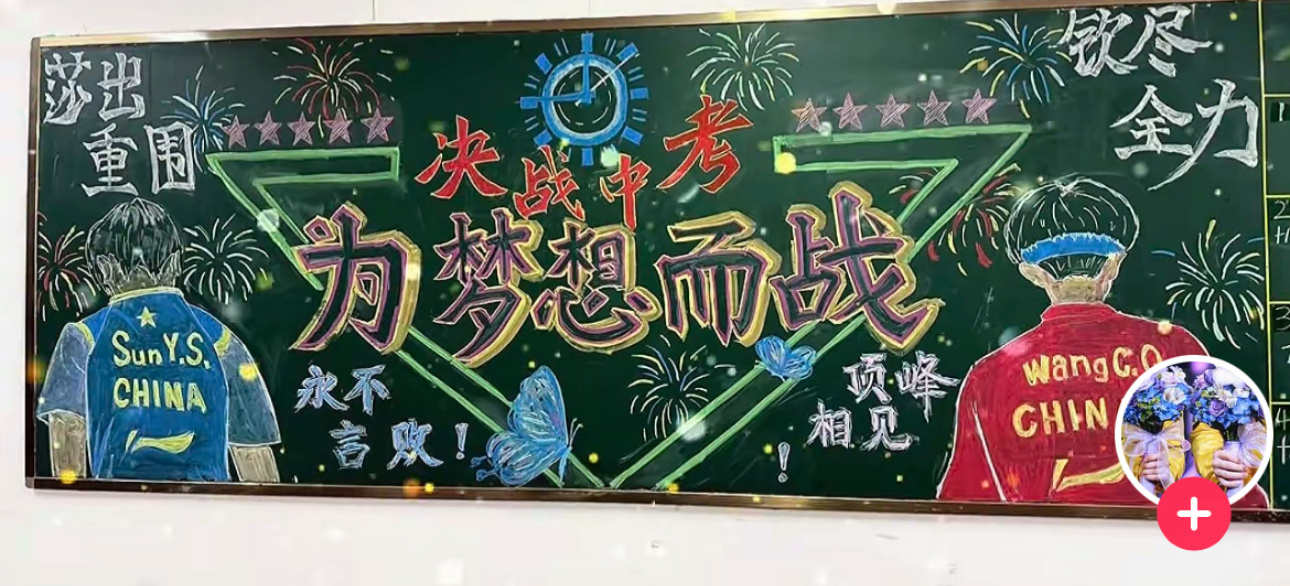 莎出
重围
钦尽
全力
决战中考
为梦想而战
Sun Y.S.
CHINA
永不
言败！
顶峰
相见！
Wang C.Q
CHIN